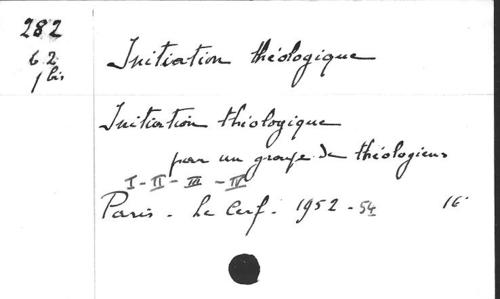 282
62
1 bis
Initiation théologique
Initiation théologique
par un groupe de théologiens
I - II - III - IV
Paris - Le Cerf - 1952 - 54 16°